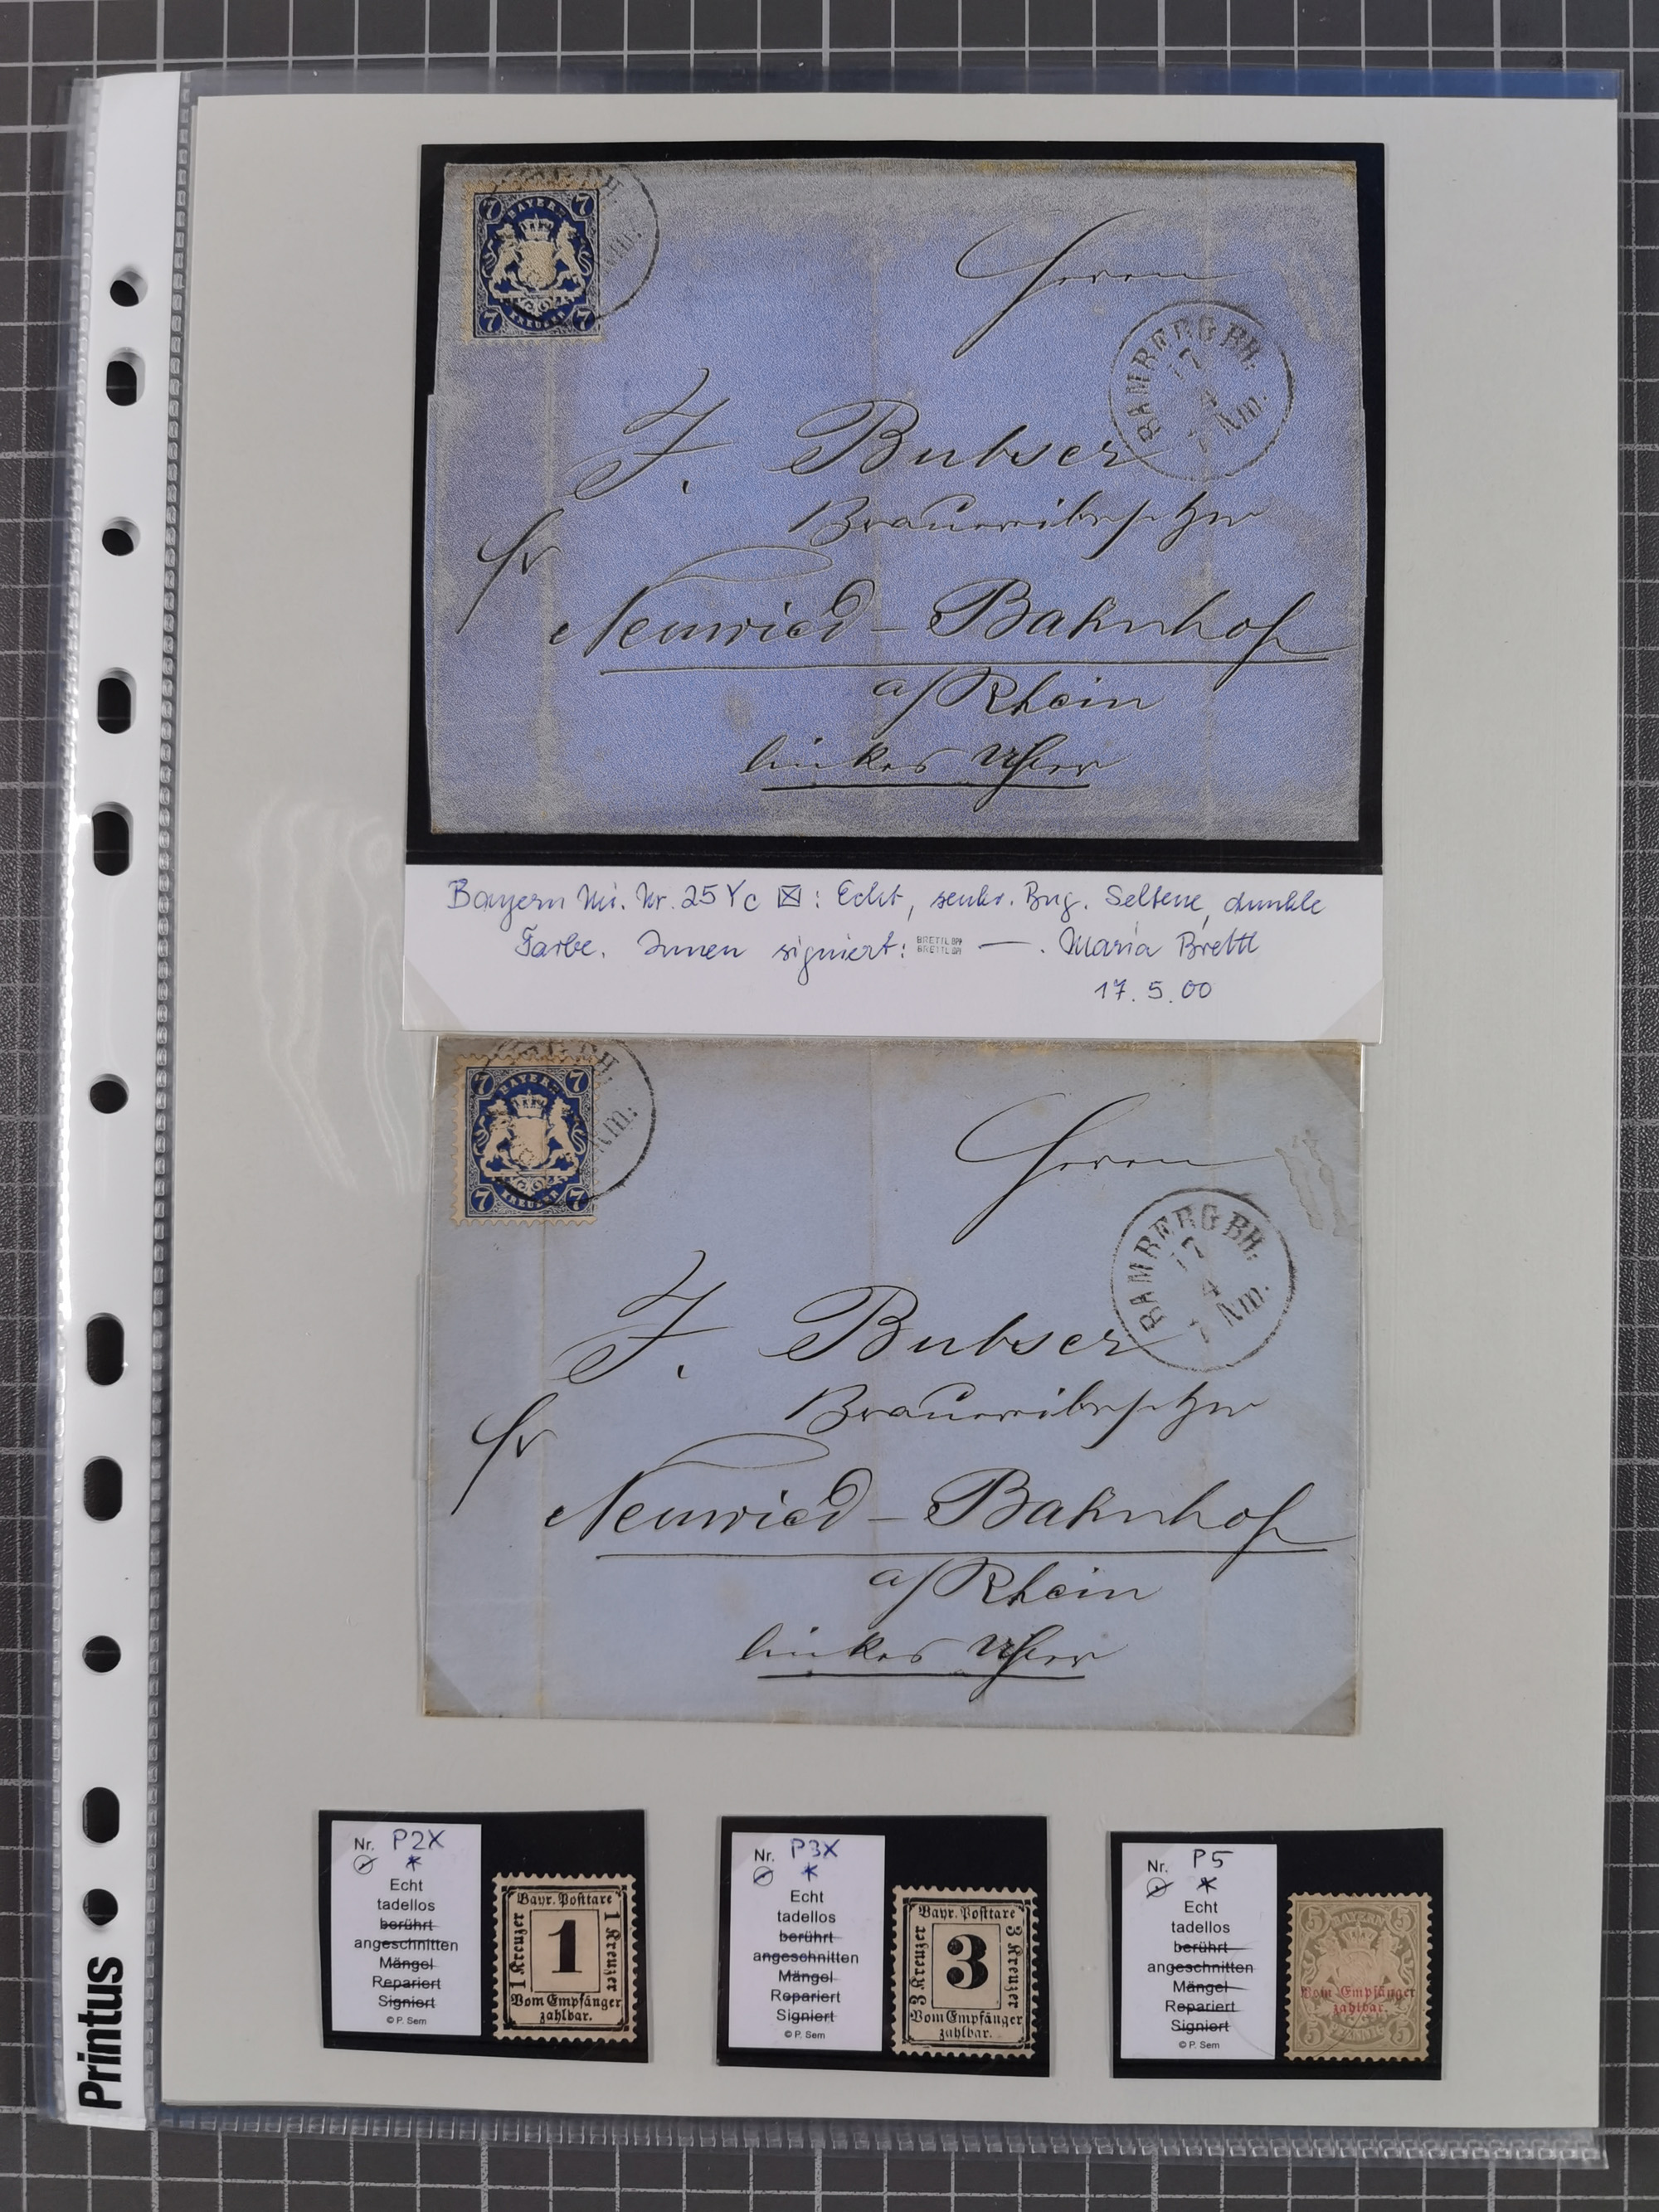 7 BAYERN 7
7 KREUZER 7
BAMBERG BH.
17
4
Nm.
Herrn
J. Bubser
Brauereibesitzer
fr
Neuwied - Bahnhof
a/Rhein
linkes Ufer
Bayern Mi. Nr. 25 Yc ☒: Echt, senkr. Bug. Seltene, dunkle
Farbe. Innen signiert: BRETTL BPP —. Maria Brettl
17.5.00
7 BAYERN 7
7 KREUZER 7
BAMBERG BH.
17
4
Nm.
Herrn
J. Bubser
Brauereibesitzer
fr
Neuwied - Bahnhof
a/Rhein
linkes Ufer
Nr. P2X
*
Echt
tadellos
berührt
angeschnitten
Mängel
Repariert
Signiert
© P. Sem
Bayr. Posttaxe
1 Kreuzer
1
1 Kreuzer
Vom Empfänger
zahlbar.
Nr. P3X
*
Echt
tadellos
berührt
angeschnitten
Mängel
Repariert
Signiert
© P. Sem
Bayr. Posttaxe
3 Kreuzer
3
3 Kreuzer
Vom Empfänger
zahlbar.
Nr. P5
*
Echt
tadellos
berührt
angeschnitten
Mängel
Repariert
Signiert
© P. Sem
5 BAYERN 5
Vom Empfänger
zahlbar.
5 PFENNIG 5
Printus